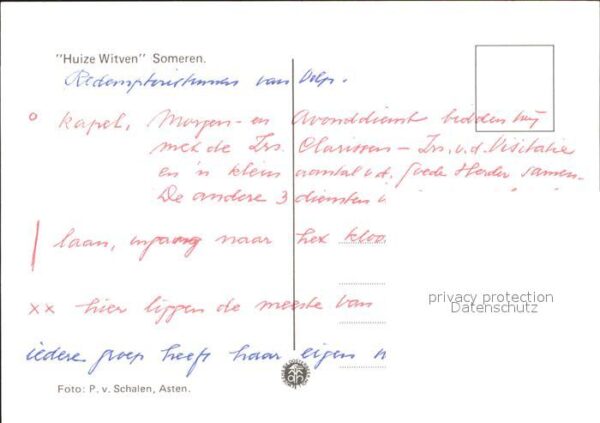 "Huize Witven" Someren.
Redemptoristinnen van Velp.
o kapel, Morgen- en Avonddienst bidden wij
met de Zrs. Clarissen - Zrs. v.d. Visitatie
en 'n klein aantal v.d. goede Herder samen.
De andere 3 diensten
| laan, ingang naar het kloo
xx hier liggen de meeste van
iedere groep heeft haar eigen
privacy protection
Datenschutz
Foto: P. v. Schalen, Asten.